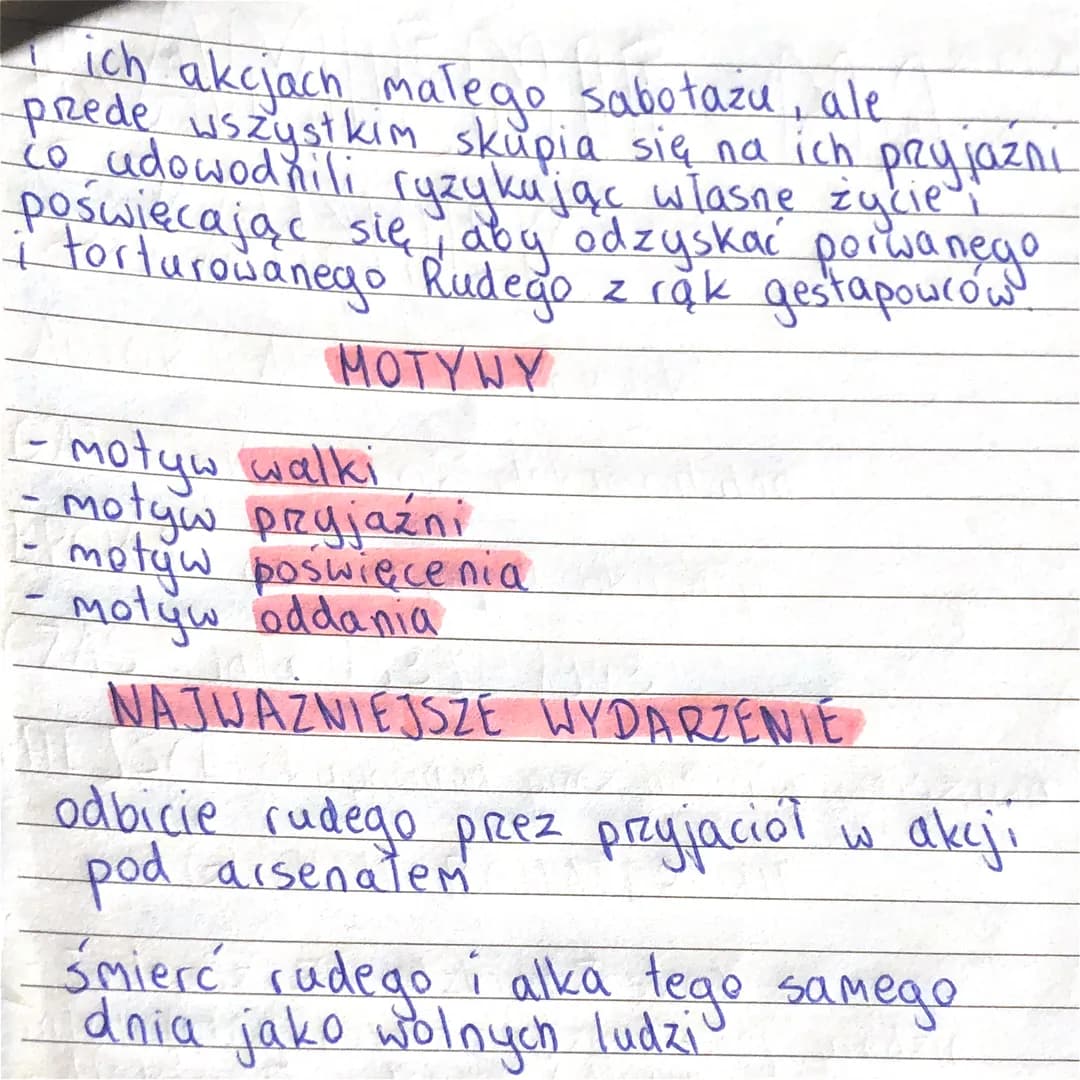 i ich akcjach małego sabotażu, ale
przede wszystkim skupia się na ich przyjaźni
co udowodnili ryzykując własne życie i
poświęcając się, aby odzyskać porwanego
i torturowanego Rudego z rąk gestapowców
MOTYWY
- motyw walki
- motyw przyjaźni
- motyw poświęcenia
- motyw oddania
NAJWAŻNIEJSZE WYDARZENIE
odbicie rudego przez przyjaciół w akcji
pod arsenałem
śmierć rudego i alka tego samego
dnia jako wolnych ludzi